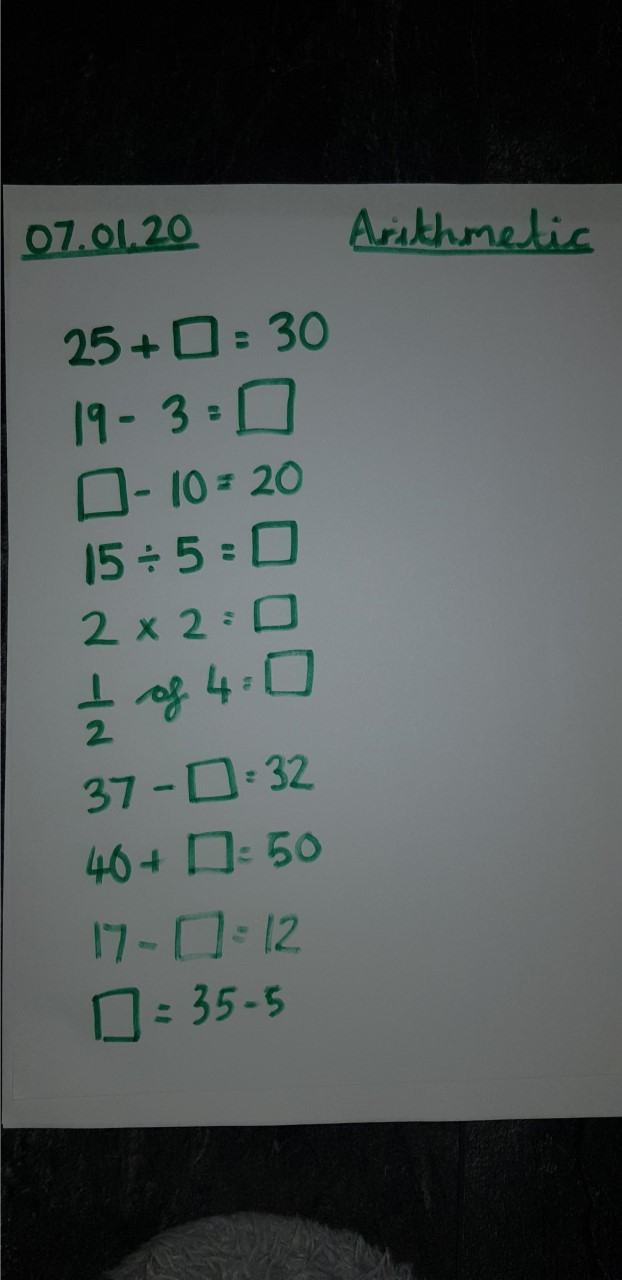 07.01.20 Arithmetic
25 + □ = 30
19 - 3 = □
□ - 10 = 20
15 ÷ 5 = □
2 × 2 = □
1/2 of 4 = □
37 - □ = 32
40 + □ = 50
17 - □ = 12
□ = 35 - 5